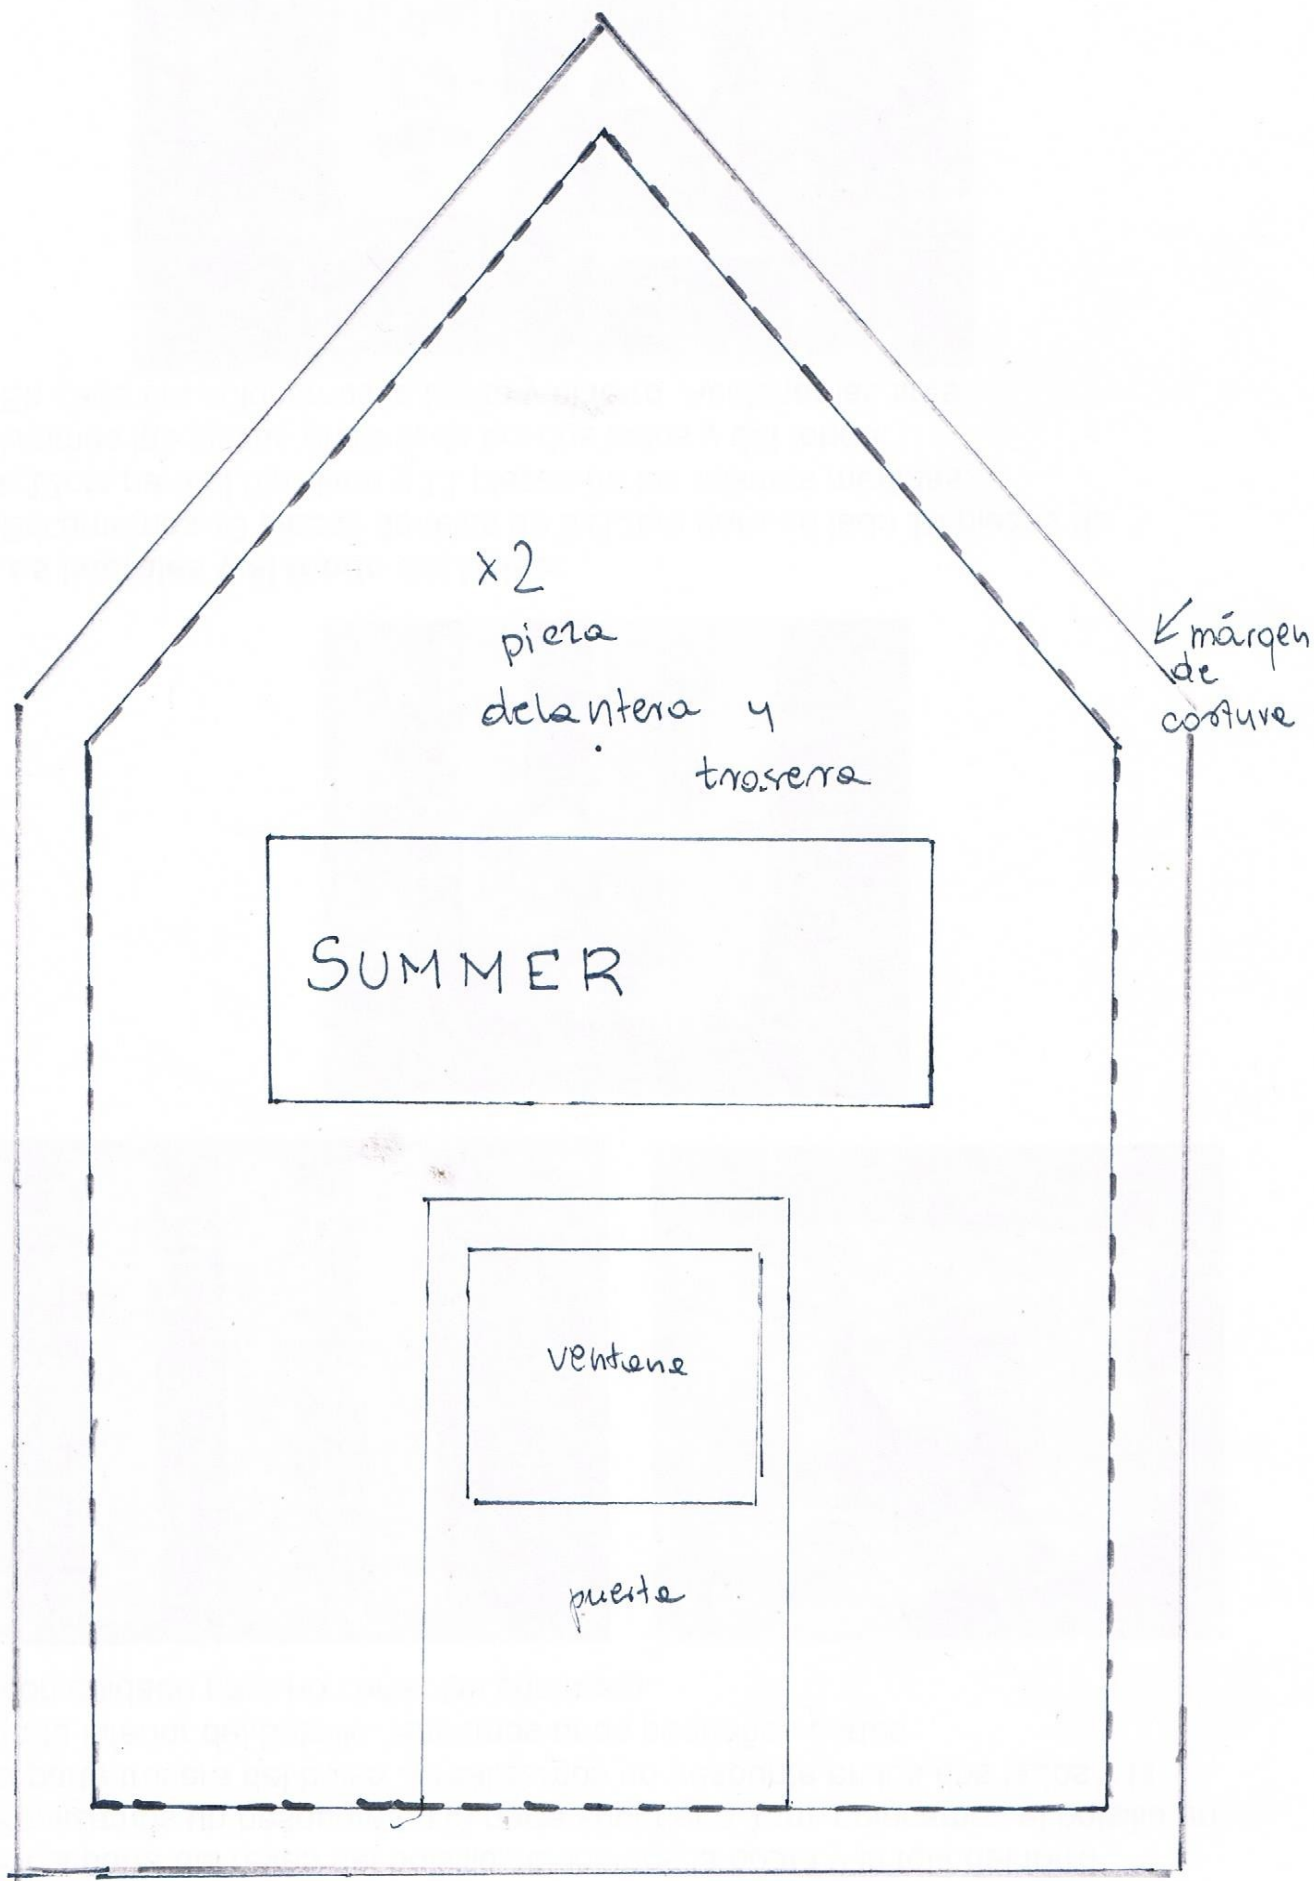 x2
pieza
delantera y
trasera
márgen
de
costura
SUMMER
ventana
puerta